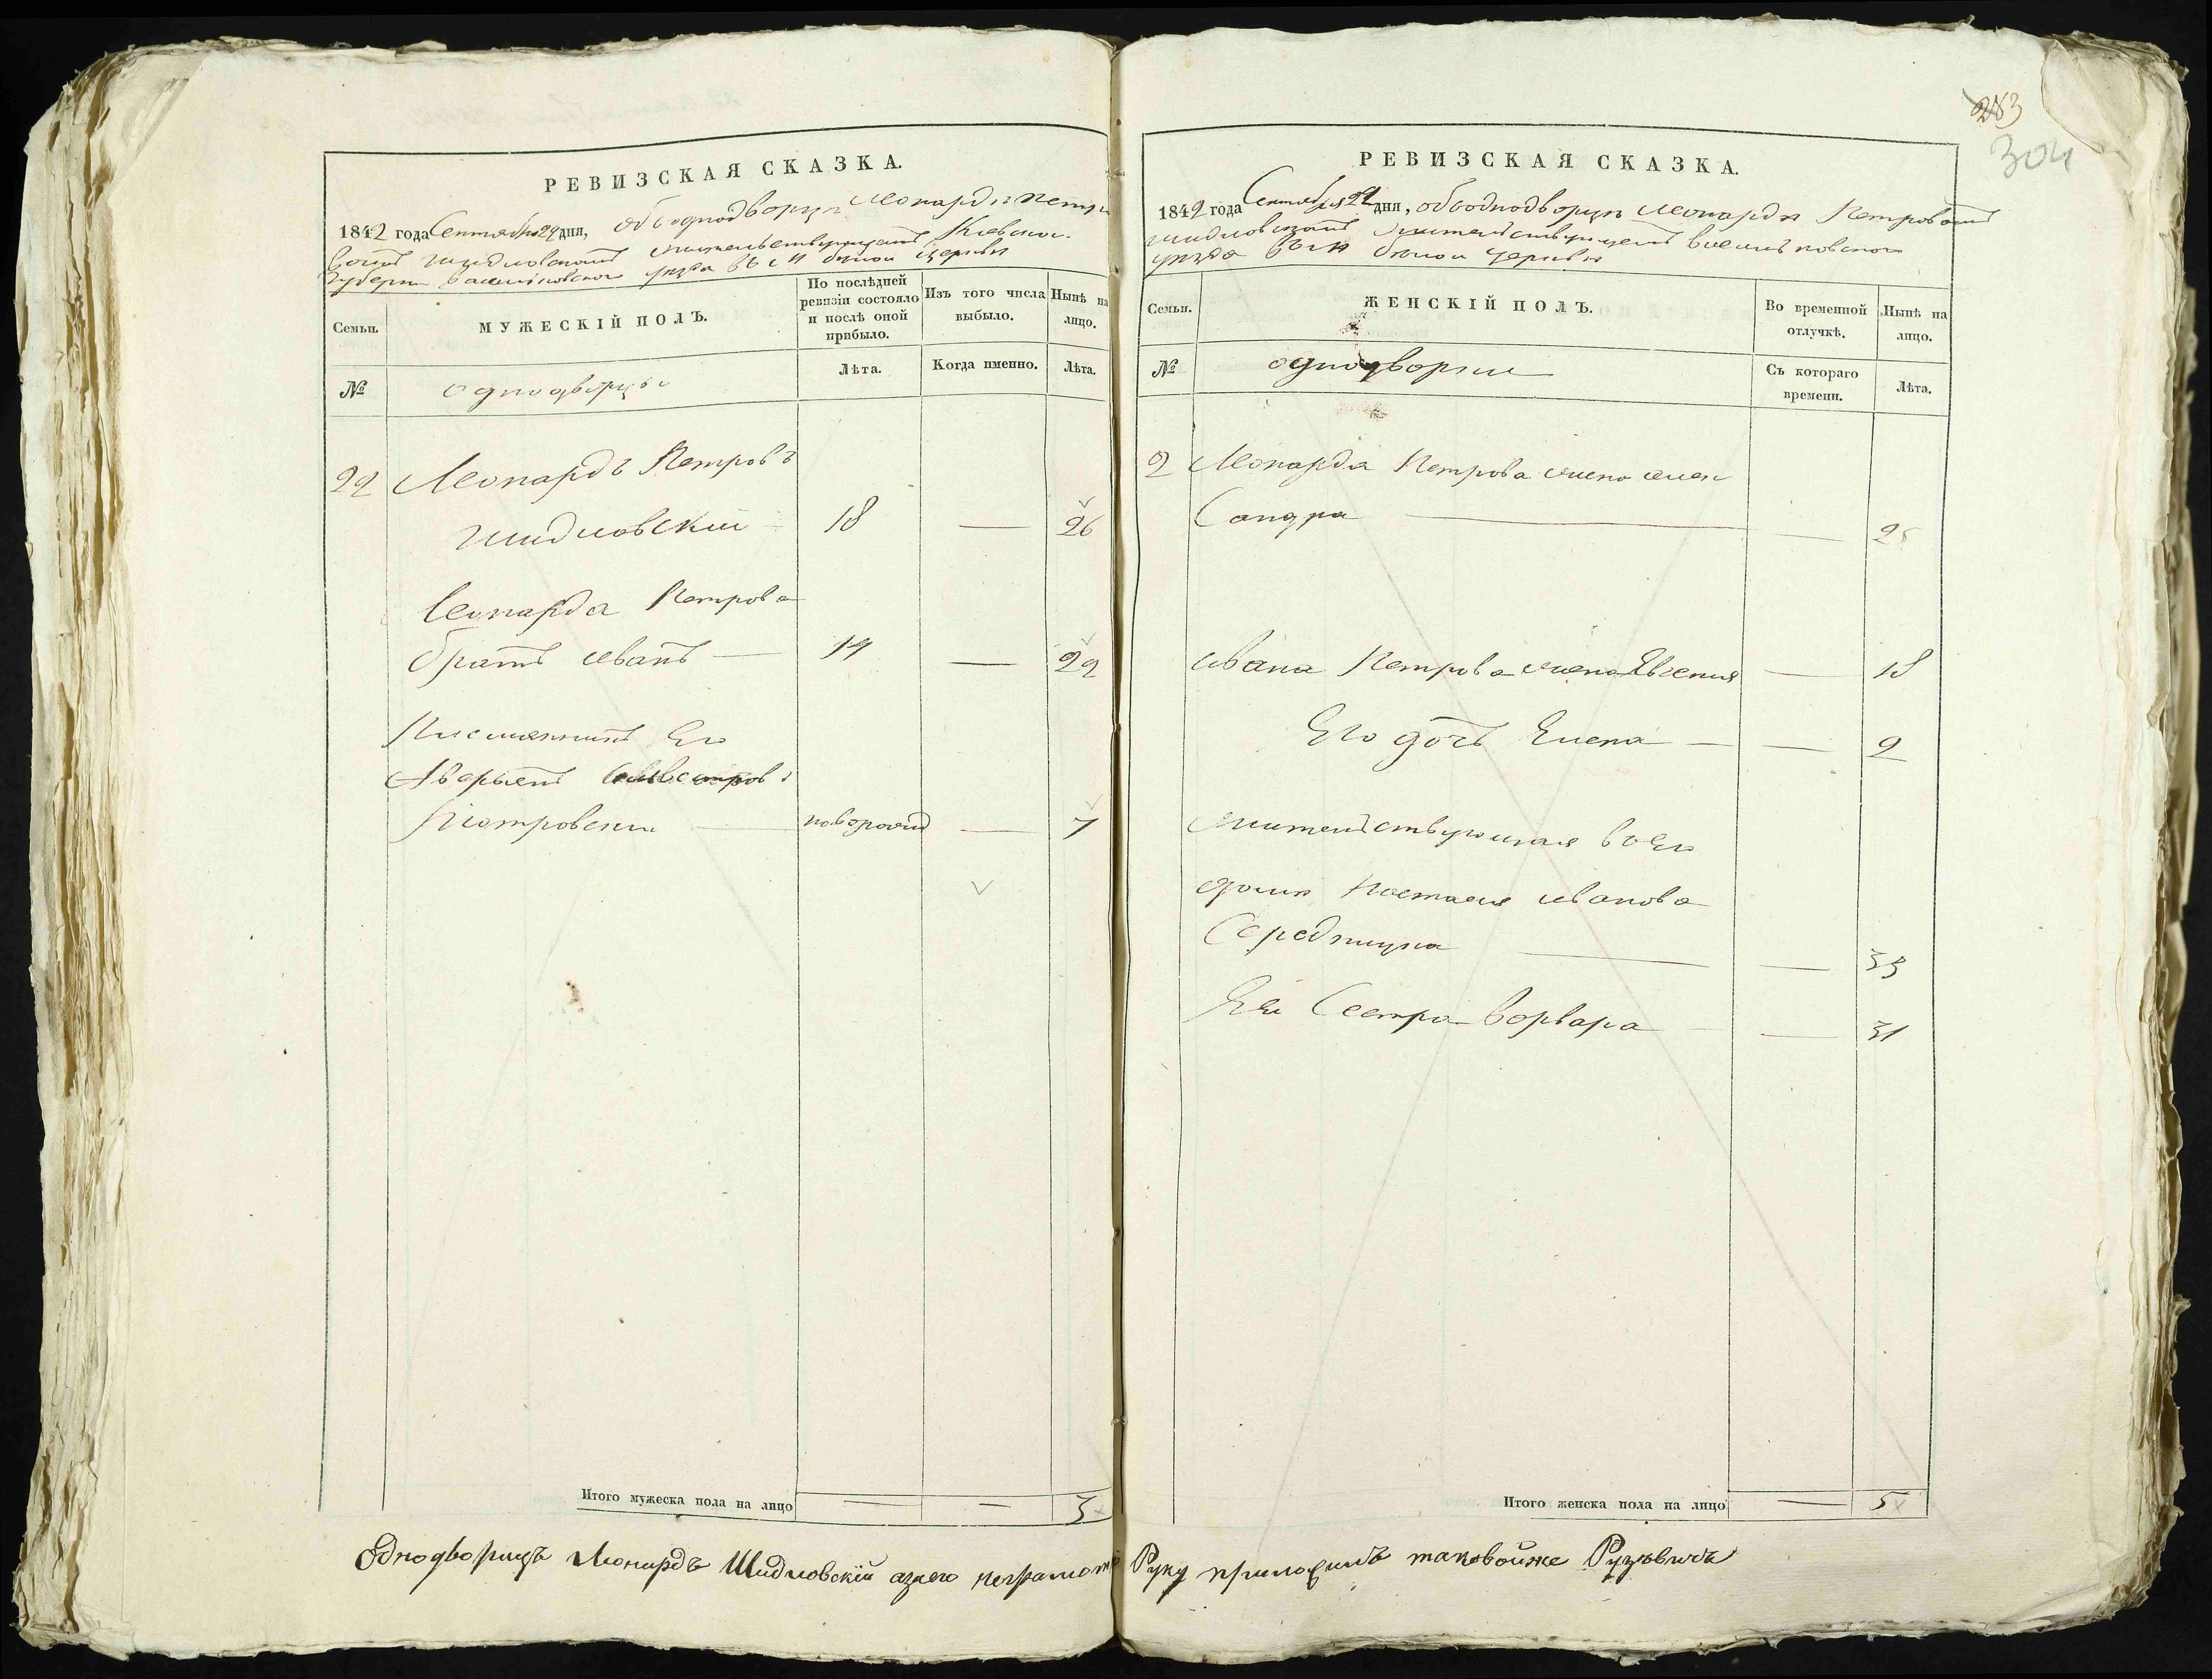 283
304
РЕВИЗСКАЯ СКАЗКА.
1842 года Сентября 29 дня, объ однодворцѣ Леонардѣ Петро
вомъ Шидловскомъ жительствующемъ Кіевской
Губерни Васильковского уѣзда въ м Бѣлой Церкви
Семьи.
МУЖЕСКІЙ ПОЛЪ.
По послѣдней ревизіи состояло и послѣ оной прибыло.
Изъ того числа выбыло.
Нынѣ на лицо.
№
однодворцы
Лѣта.
Когда именно.
Лѣта.
22 Леонардъ Петровъ
Шидловскій 18 — 26
Леонарда Петрова
братъ Иванъ — 14 — 22
Племянникъ Его
Аверьянъ
Піотровски — новорожд — 7
Итого мужеска пола на лицо — — 3
РЕВИЗСКАЯ СКАЗКА.
1842 года Сентября 29 дня, объ однодворцѣ Леонардѣ Петровомъ
Шидловскомъ жительствующемъ Васильковского
уѣзда въ м Бѣлой Церкви
Семьи.
ЖЕНСКІЙ ПОЛЪ.
Во временной отлучкѣ.
Нынѣ на лицо.
№
однодворки
Съ котораго времени.
Лѣта.
2 Леонарда Петрова жена Алек
Сандра — — 25
Ивана Петрова жена Евгения — 18
Его дочь Елена — — 2
жительствующая в Его
домѣ Настасия Иванова
— — 33
Ея Сестра Ворвара — 31
Итого женска пола на лицо — 5
Однодворецъ Леонардъ Шидловскій азаего неграмотно Руку приложилъ таковойже Рузкевичъ